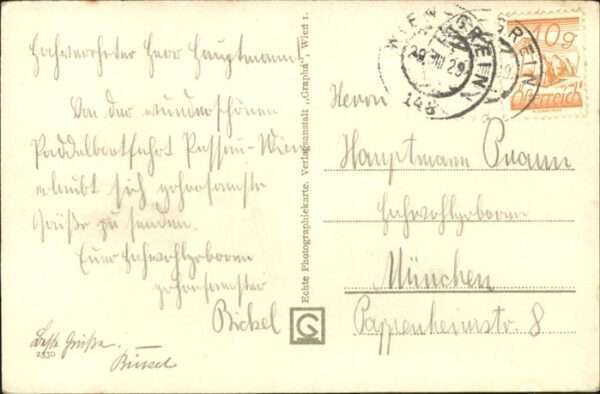 Hochverehrter Herr Hauptmann
Von der wunderschönen
Paddelbootfahrt Passau-Wien
erlaubt sich gehorsamste
Grüße zu senden.
Euer Hochwohlgeboren
gehorsamster
Bickel
Beste Grüße.
2530
Echte Photographiekarte. Verlagsanstalt „Grapha“, Wien I.
G
WIEN
29 VIII 29
148
GREIN
GREIN
10g
Österreich
Herrn
Hauptmann
Hochwohlgeboren
München
Pappenheimstr. 8